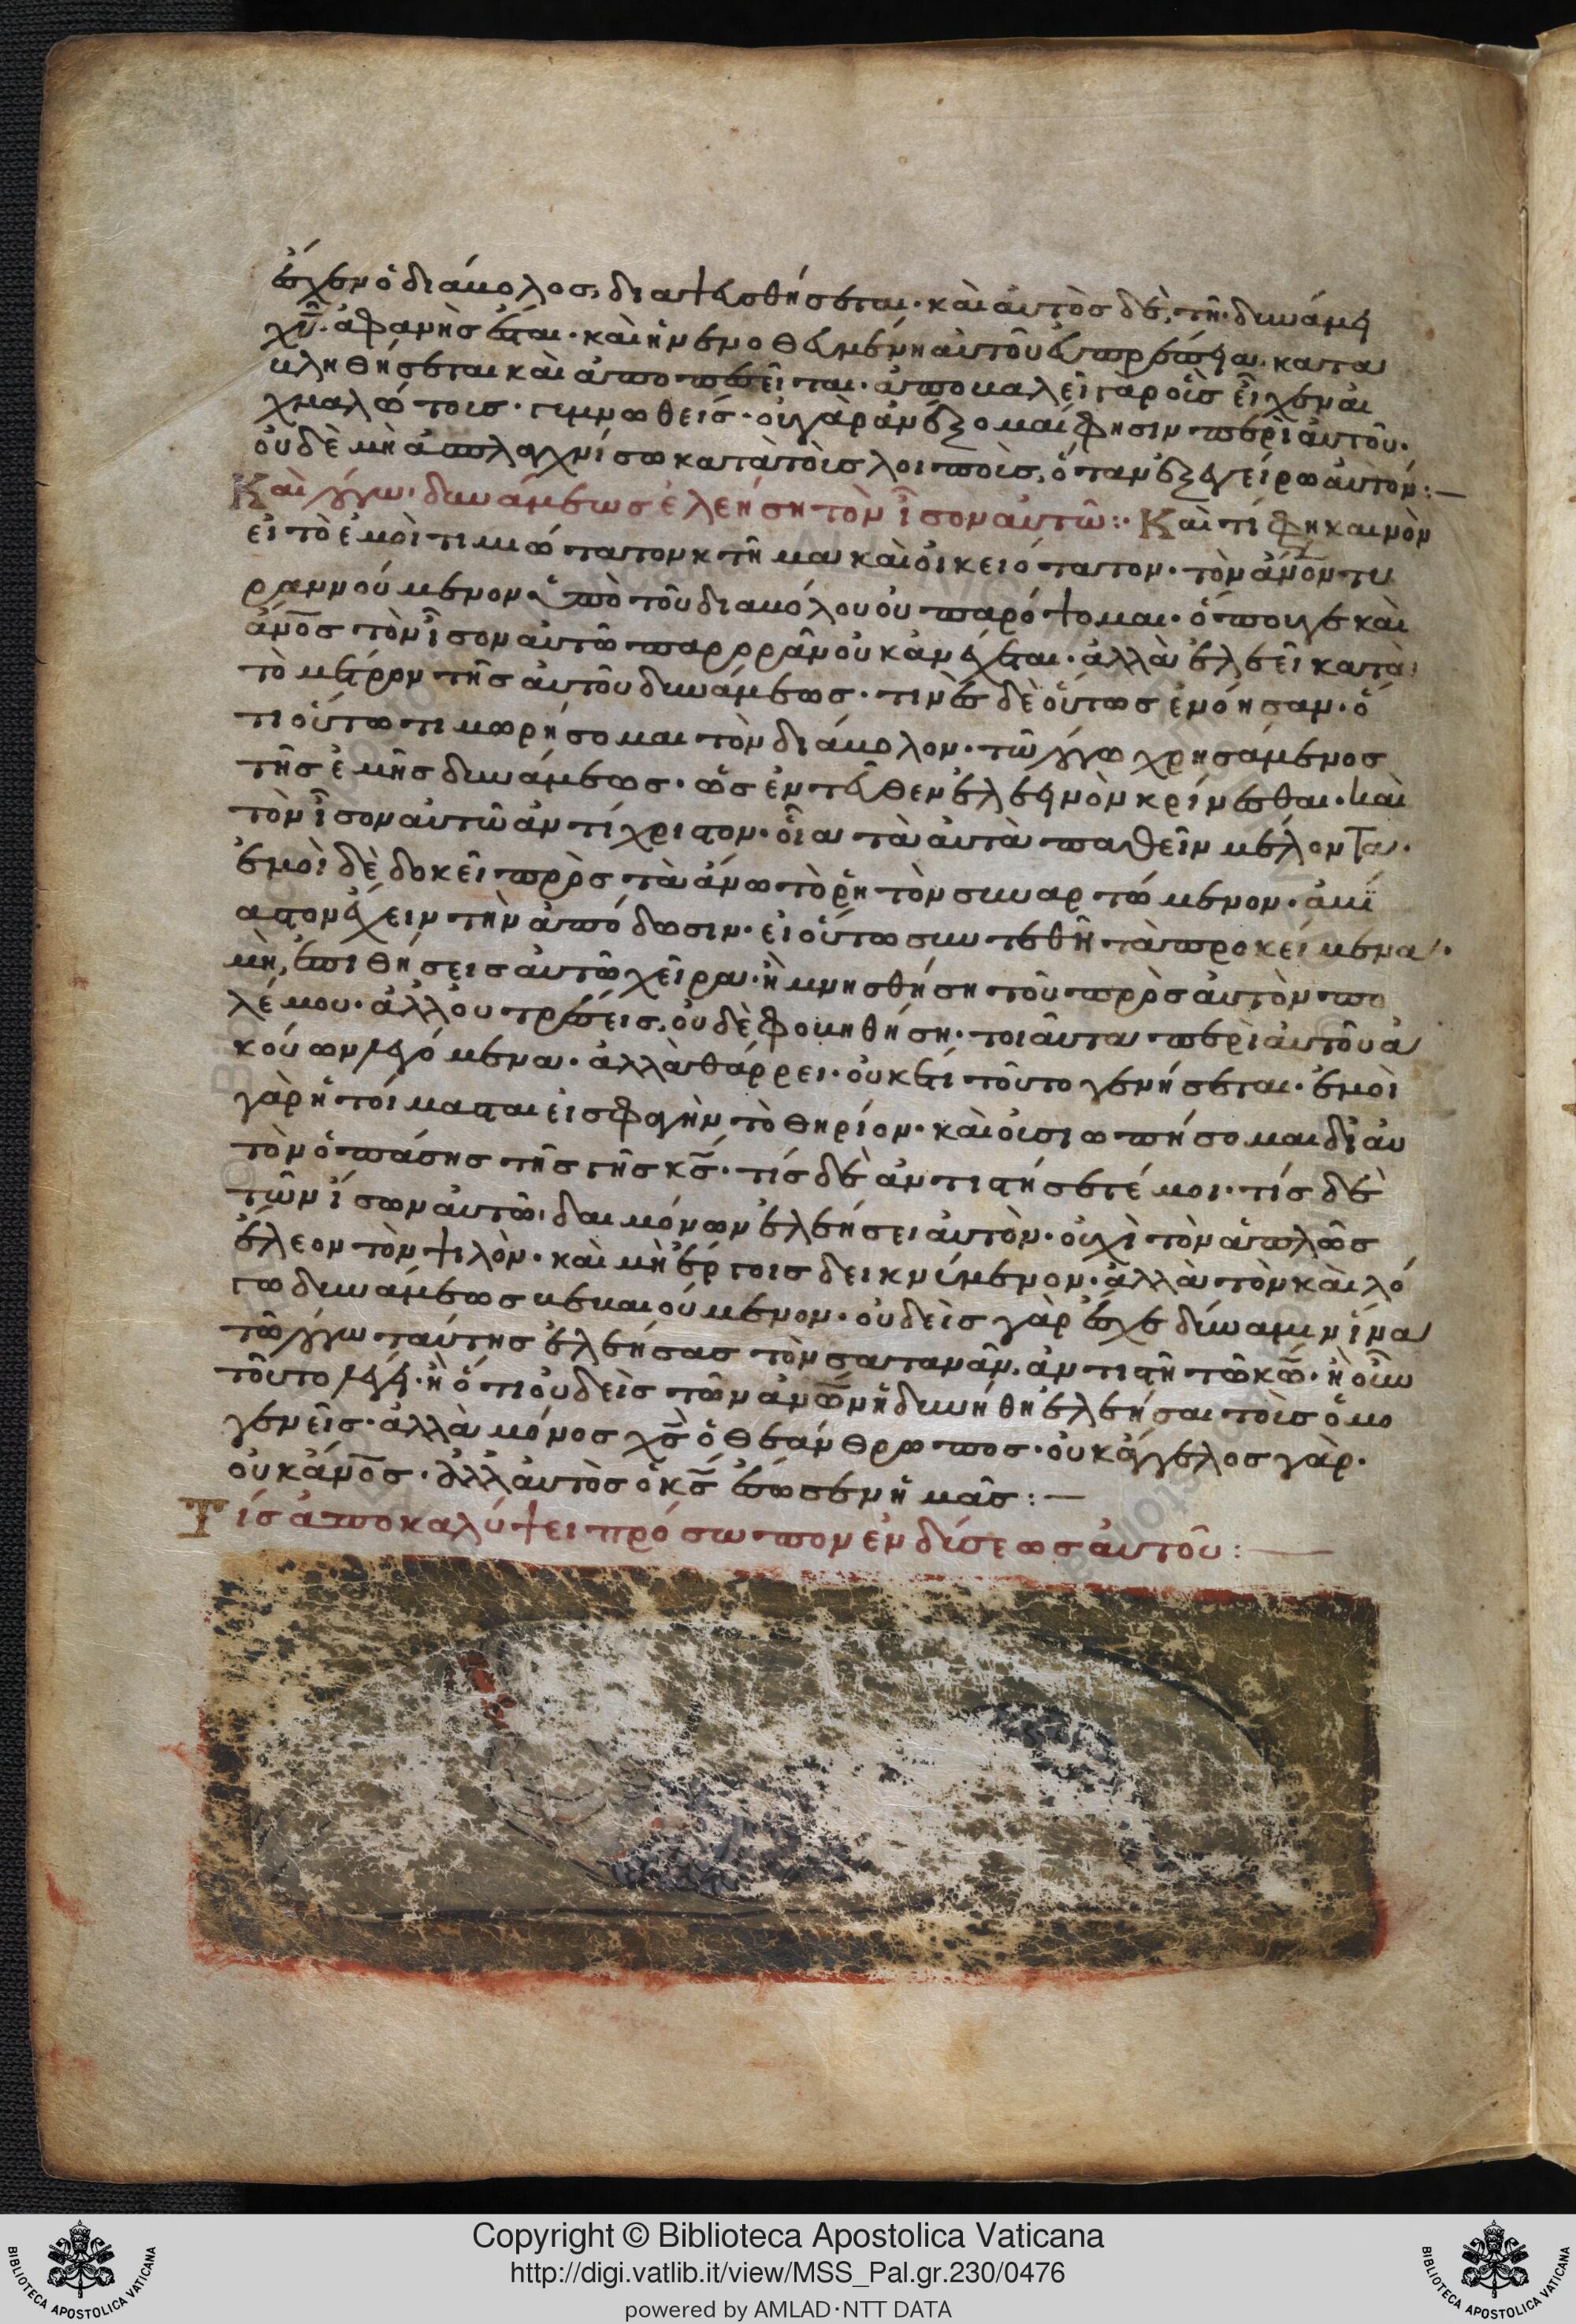 εἶχεν ὁ διάβολος, διαψευσθήσεται· καὶ αὐτὸς δὲ, τῆ δυνάμει
χ̅υ̅· ἀφανὴς ἔσται· καὶ ἡ νενοθευμένη αὐτοῦ εὐπρέπεια κατα
βληθήσεται καὶ ἀποπεσεῖται· ἀποβαλεῖ γαρ οἷς εἶχεν αἰ
χμαλώτοις· γυμνωθείς· οὐ γὰρ ἀνέξομαί φησιν περὶ αὐτοῦ·
οὐδὲ μὴ σπλαγχνίσω κατὰ τοῖς λοιποῖς, ὅταν ἐξεγείρω αὐτόν:—
Καὶ λόγω δυνάμεως ἐλεήση τὸν ἴσον αὐτῶ:· Καὶ τί φη καινὸν
εἰ τὸ ἐμοὶ τιμιώτατον κτῆμα καὶ οἰκειότατον· τὸν α̅ν̅ο̅ν τυ
ραννούμενον ὑπὸ τοῦ διαβόλου οὐ παρόψομαι· ὅπου γε καὶ
α̅ν̅ο̅ς τὸν ἴσον αὐτῶ παρορᾶν οὐκ ἀνέχεται· ἀλλὰ ἐλεεῖ κατὰ
τὸ μέτρον τῆς αὐτοῦ δυνάμεως· τινὲς δὲ οὕτως ἐνόησαν· ὅ
τι οὕτω τιμωρήσομαι τὸν διάβολον· τῶ λόγω χρησάμενος
τῆς ἐμῆς δυνάμεως· ὡς ἐντεῦθεν ἐλεεινὸν κρίνεσθαι· καὶ
τὸν ἴσον αὐτῶ ἀντίχριστον· οἷα τὰ αὐτὰ παθεῖν μέλοντα·
ἐμοὶ δὲ δοκεῖ πρὸς τὰ ἄνω τὸ ῥητὸν συναρτώμενον·
τὴν ἀπόδοσιν· εἰ οὕτω συντεθῆ τὰ προκείμενα·
μὴ, ἐπιθήσεις αὐτῶ χεῖρα· ἢ μνησθήση τοῦ πρὸς αὐτὸν πο
λέμου· ἀλλ' οὐ τρέσεις, οὐδὲ φοβηθήση· τοιαῦτα περὶ αὐτοῦ ἀ
κούων λεγόμενα· ἀλλὰ θάρρει· οὐκέτι τοῦτο γενήσεται· ἐμοὶ
γὰρ ἡτοίμασται εἰς σφαγὴν τὸ θηρίον· καὶ οὐ σιωπήσομαι δι' αὐ
τὸν ὁ πάσης τῆς γῆς κ̅ς̅· τίς δὲ ἀντιστήσεταί μοι· τίς δὲ
τῶν ἴσων αὐτῶ, δαιμόνων ἐλεήσει αὐτὸν· οὐχὶ τὸν ἁπλῶς
ἔλεον τὸν ψιλὸν· καὶ μὴ ἔργοις δεικνύμενον· ἀλλὰ τὸν καὶ λό
γω δυνάμεως βεβαιούμενον· οὐδεὶς γὰρ ἔχει δύναμιν ἵνα
τῶ λόγω ταύτης ἐλεήσας τὸν σατανᾶν, ἀντιστῆ τῶ κ̅ω̅· ἢ οὖν
τοῦτο λέγει· ἢ ὅτι οὐδεὶς τῶν α̅ν̅ω̅ν ἠδυνήθη ἐλεῆσαι τοῖς ὁμο
γενεῖς· ἀλλὰ μόνος χ̅ς̅ ὁ θεάνθρωπος· οὐκ ἄγγελος γὰρ·
οὐκ α̅ν̅ο̅ς· ἀλλ' αὐτὸς ὁ κ̅ς̅ ἔσωσεν ἡμᾶς:—
Τίς ἀποκαλύψει πρόσωπον ἐνδύσεως αὐτοῦ:—
Copyright © Biblioteca Apostolica Vaticana
http://digi.vatlib.it/view/MSS_Pal.gr.230/0476
powered by AMLAD·NTT DATA
BIBLIOTECA APOSTOLICA VATICANA
BIBLIOTECA APOSTOLICA VATICANA